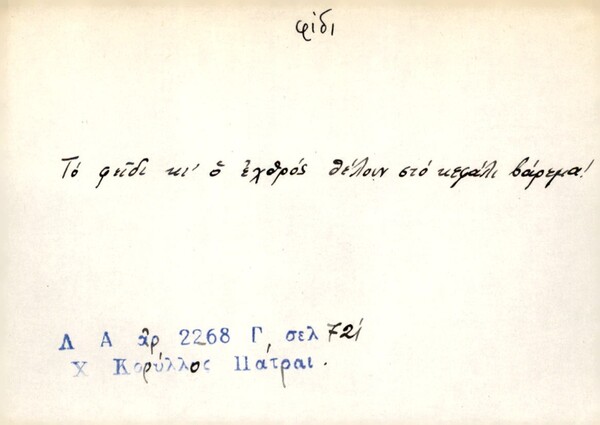 φίδι
Τό φεῖδι κι' ὁ ἐχθρός θέλουν στό κεφάλι βάρεμα!
Λ Α ἀρ 2268 Γ, σελ 721
Χ Κορύλλος Πάτραι.